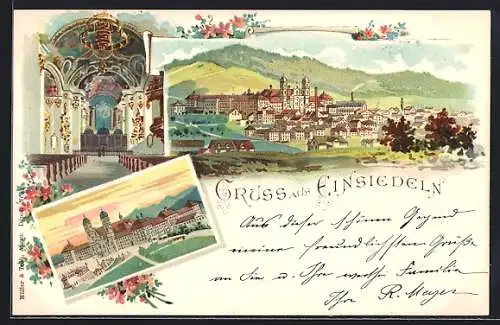 GRUSS aus EINSIEDELN
Aus dieser schönen Gegend
meine freundlichsten Grüße
an Sie u. Ihre werthe Familie
Ihr R. Mayer
Müller &